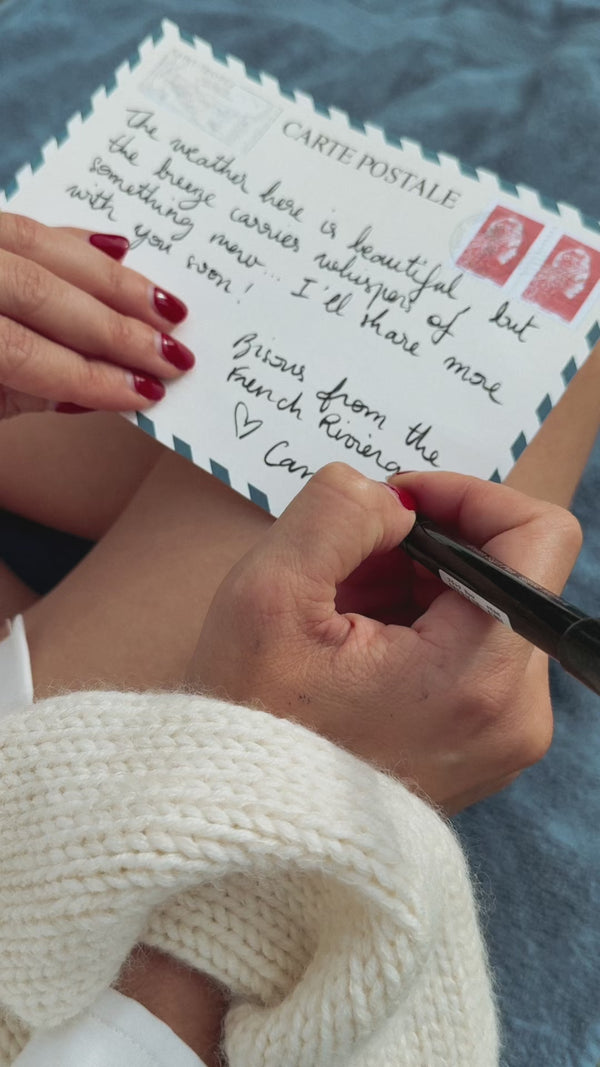 CARTE POSTALE
The weather here is beautiful, but
the breeze carries whispers of
something new... I'll share more
with you soon!
Bisous from the
French Riviera
♡ Cam